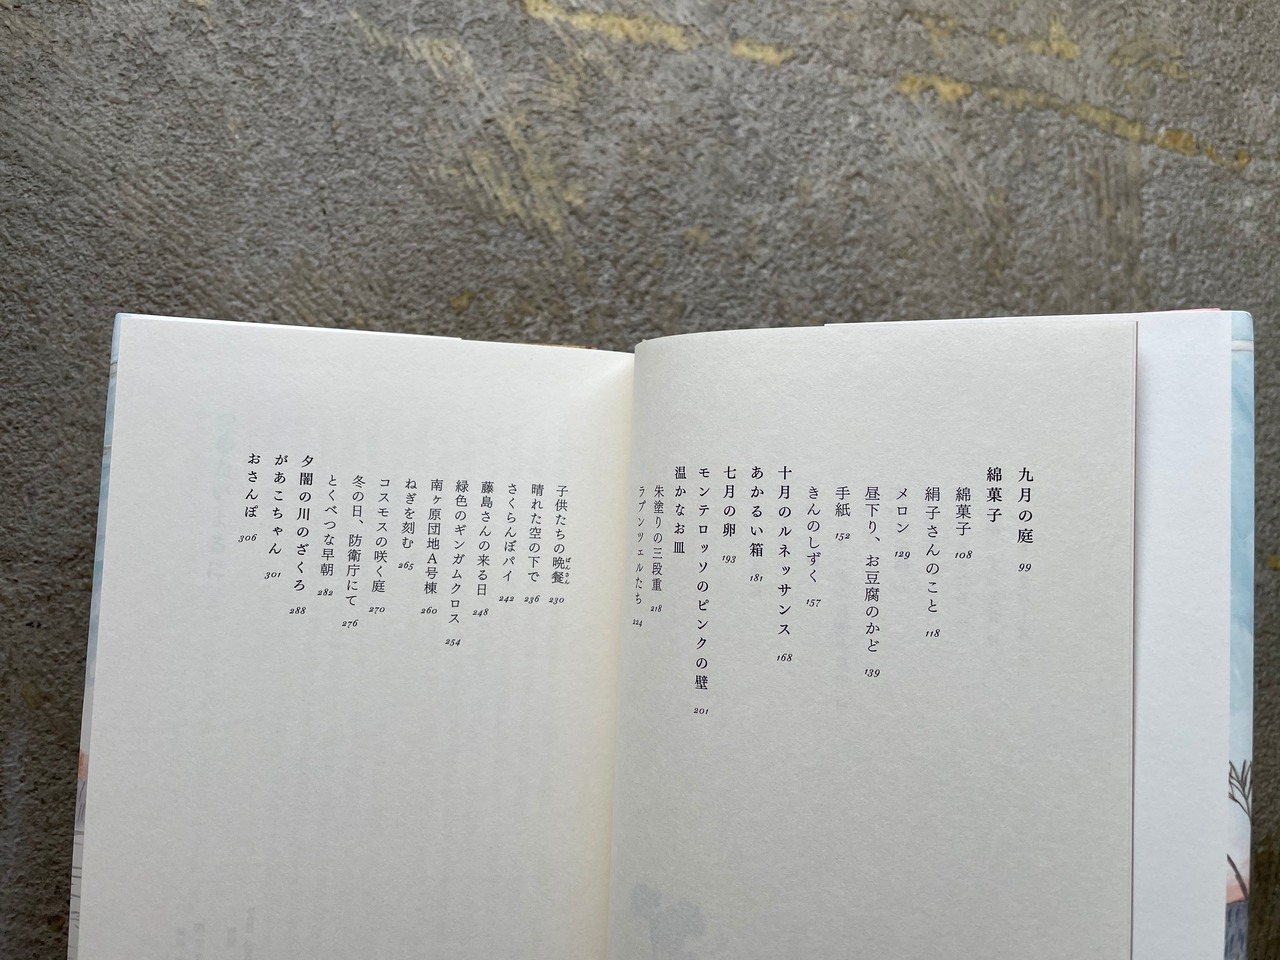 九月の庭 99
綿菓子
綿菓子 108
絹子さんのこと 118
メロン 129
昼下り、お豆腐のかど 139
手紙 152
きんのしずく 157
十月のルネッサンス 168
あかるい箱 181
七月の卵 193
モンテロッソのピンクの壁 201
温かなお皿
朱塗りの三段重 218
ラプンツェルたち 224
子供たちの晩餐 230
ばんさん
晴れた空の下で 236
さくらんぼパイ 242
藤島さんの来る日 248
緑色のギンガムクロス 254
南ヶ原団地A号棟 260
ねぎを刻む 265
コスモスの咲く庭 270
冬の日、防衛庁にて 276
とくべつな早朝 282
夕闇の川のざくろ 288
があこちゃん 301
おさんぽ 306